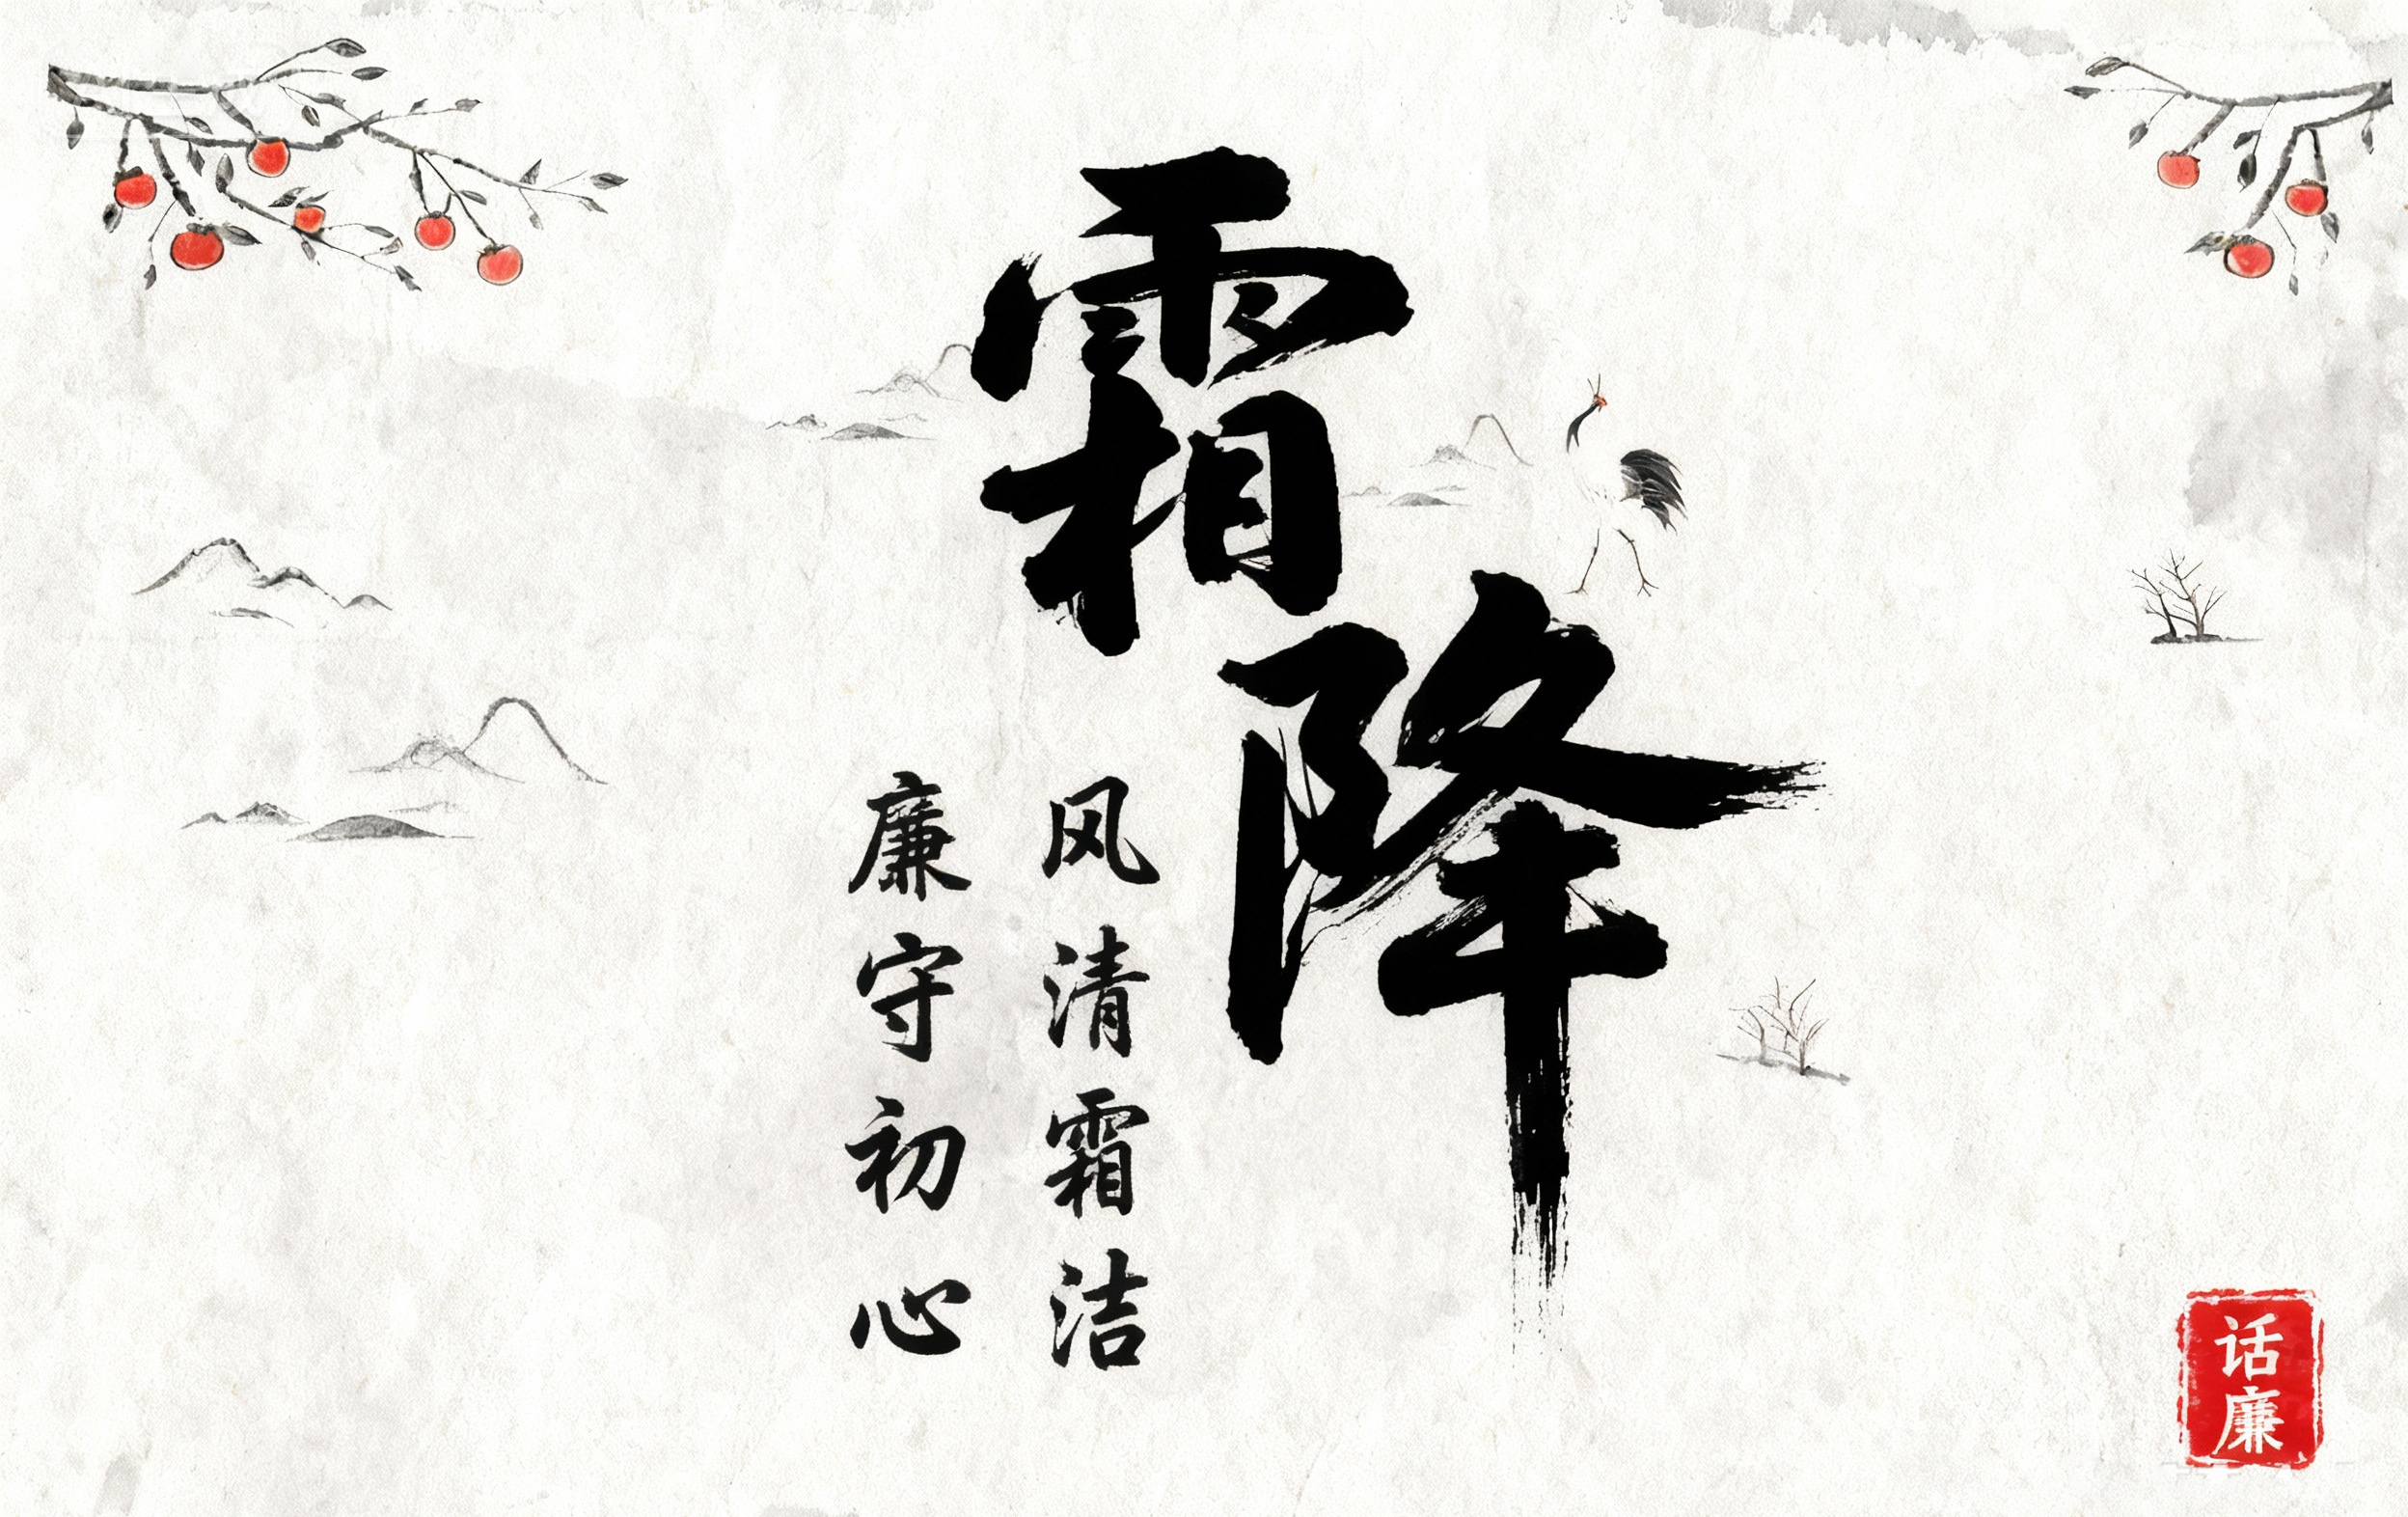 霜降
风清霜洁
廉守初心
话廉